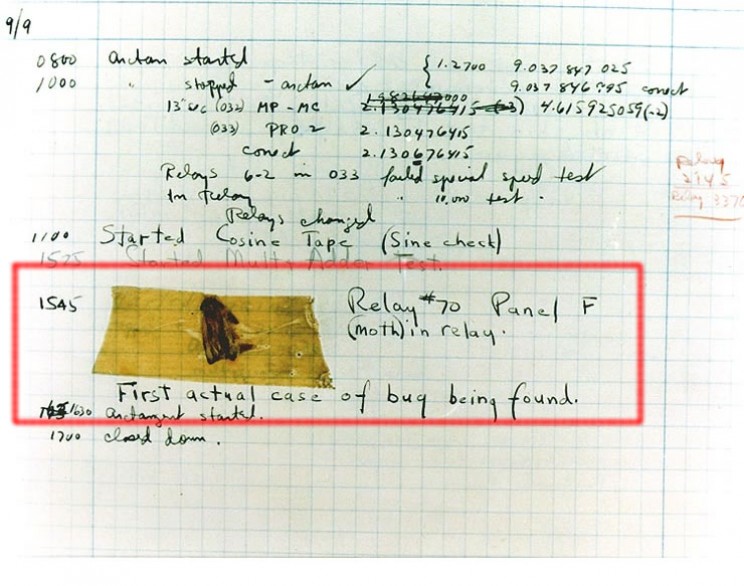 9/9
0800 arctan started { 1.2700 9.037 847 025
1000 " stopped - arctan ✓ 9.037 846 995 correct
13" uc (032) MP - MC 2.130476415 (-3) 4.615925059(-2)
(033) PRO 2 2.130476415
correct 2.130676415
Relays 6-2 in 033 failed special speed test
In Relay " 10.000 test .
Relay
2145
Relay 3370
Relays changed
1100 Started Cosine Tape (Sine check)
1525 Started Mult+Adder Test.
1545 Relay #70 Panel F
(moth) in relay.
First actual case of bug being found.
1630 arctangent started.
1700 closed down.